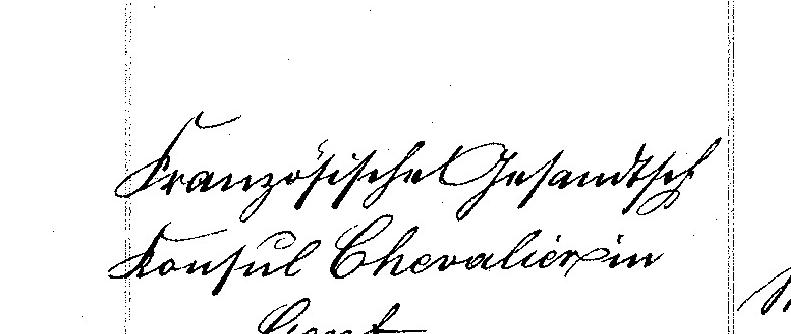 Französische Gesandtsch
Konsul Chevalier in
Gent